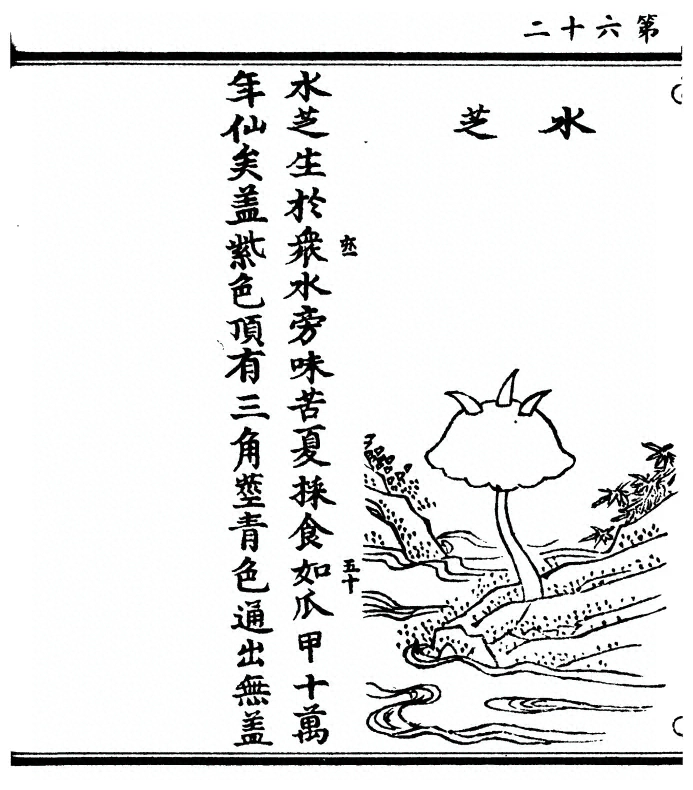 第六十二
水芝
水芝生於衆水旁味苦夏採食如瓜甲十萬
五十
年仙矣盖紫色頂有三角莖青色通出無盖